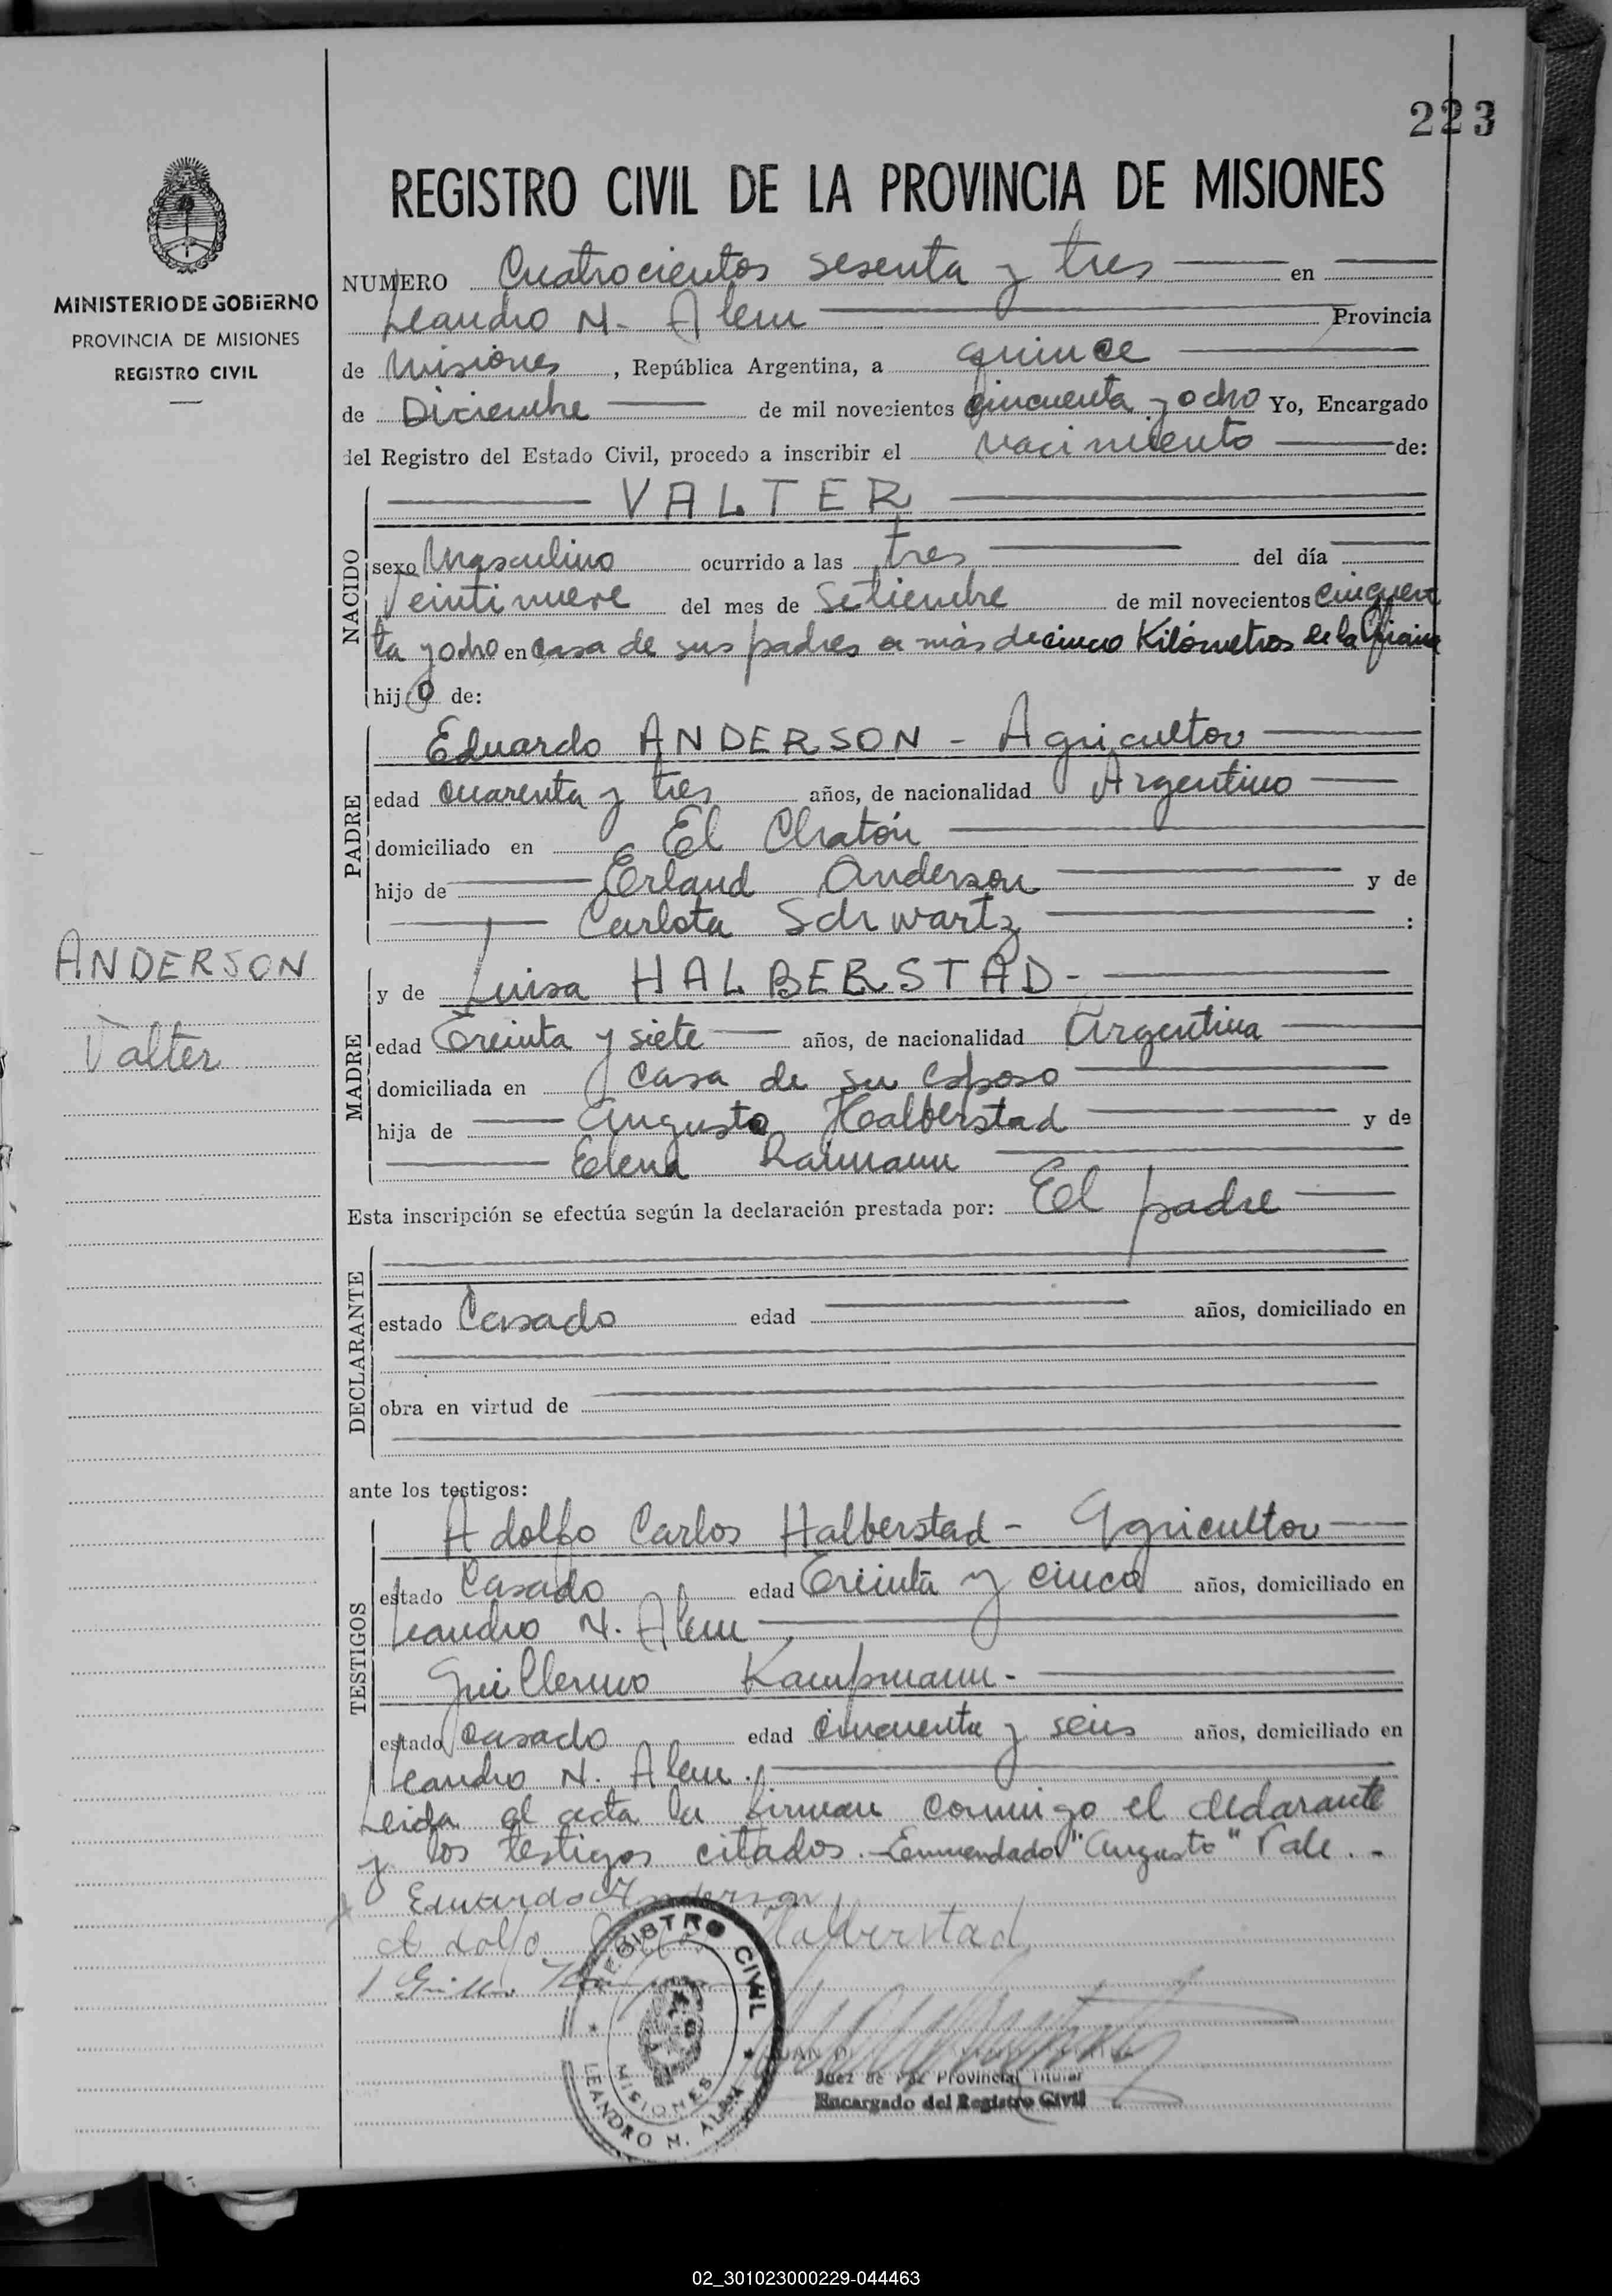 223
REGISTRO CIVIL DE LA PROVINCIA DE MISIONES
MINISTERIO DE GOBIERNO
PROVINCIA DE MISIONES
REGISTRO CIVIL
NUMERO Cuatrocientos sesenta y tres en
Leandro N. Alem Provincia
de Misiones, República Argentina, a quince
de Diciembre de mil novecientos cincuenta y ocho Yo, Encargado
del Registro del Estado Civil, procedo a inscribir el nacimiento de:
NACIDO
VALTER
sexo Masculino ocurrido a las tres del día
Veintinueve del mes de Setiembre de mil novecientos cincuen
ta y ocho en casa de sus padres a más de cinco Kilómetros de la
hijo de:
PADRE
Eduardo ANDERSON - Agricultor
edad cuarenta y tres años, de nacionalidad Argentino
domiciliado en El Chatón
hijo de Erland Anderson y de
Carlota Schwartz :
ANDERSON
Valter
MADRE
y de Luisa HALBERSTAD-
edad Treinta y siete años, de nacionalidad Argentina
domiciliada en casa de su esposo
hija de Augusto Halberstad y de
Elena Raimann
Esta inscripción se efectúa según la declaración prestada por: El padre
DECLARANTE
estado Casado edad años, domiciliado en
obra en virtud de
ante los testigos:
TESTIGOS
Adolfo Carlos Halberstad - Agricultor
estado Casado edad Treinta y cinco años, domiciliado en
Leandro N. Alem
Guillermo Kampmann.-
estado casado edad cincuenta y seis años, domiciliado en
Leandro N. Alem.
Leida el acta la firman conmigo el declarante
y los testigos citados.-Enmendado "Augusto" Vale.-
Eduardo Anderson
Adolfo Carlos Halberstad
REGISTRO CIVIL
MISIONES
LEANDRO N. ALEM
JUAN
Juez de Paz Provincial Titular
Encargado del Registro Civil
02_301023000229-044463